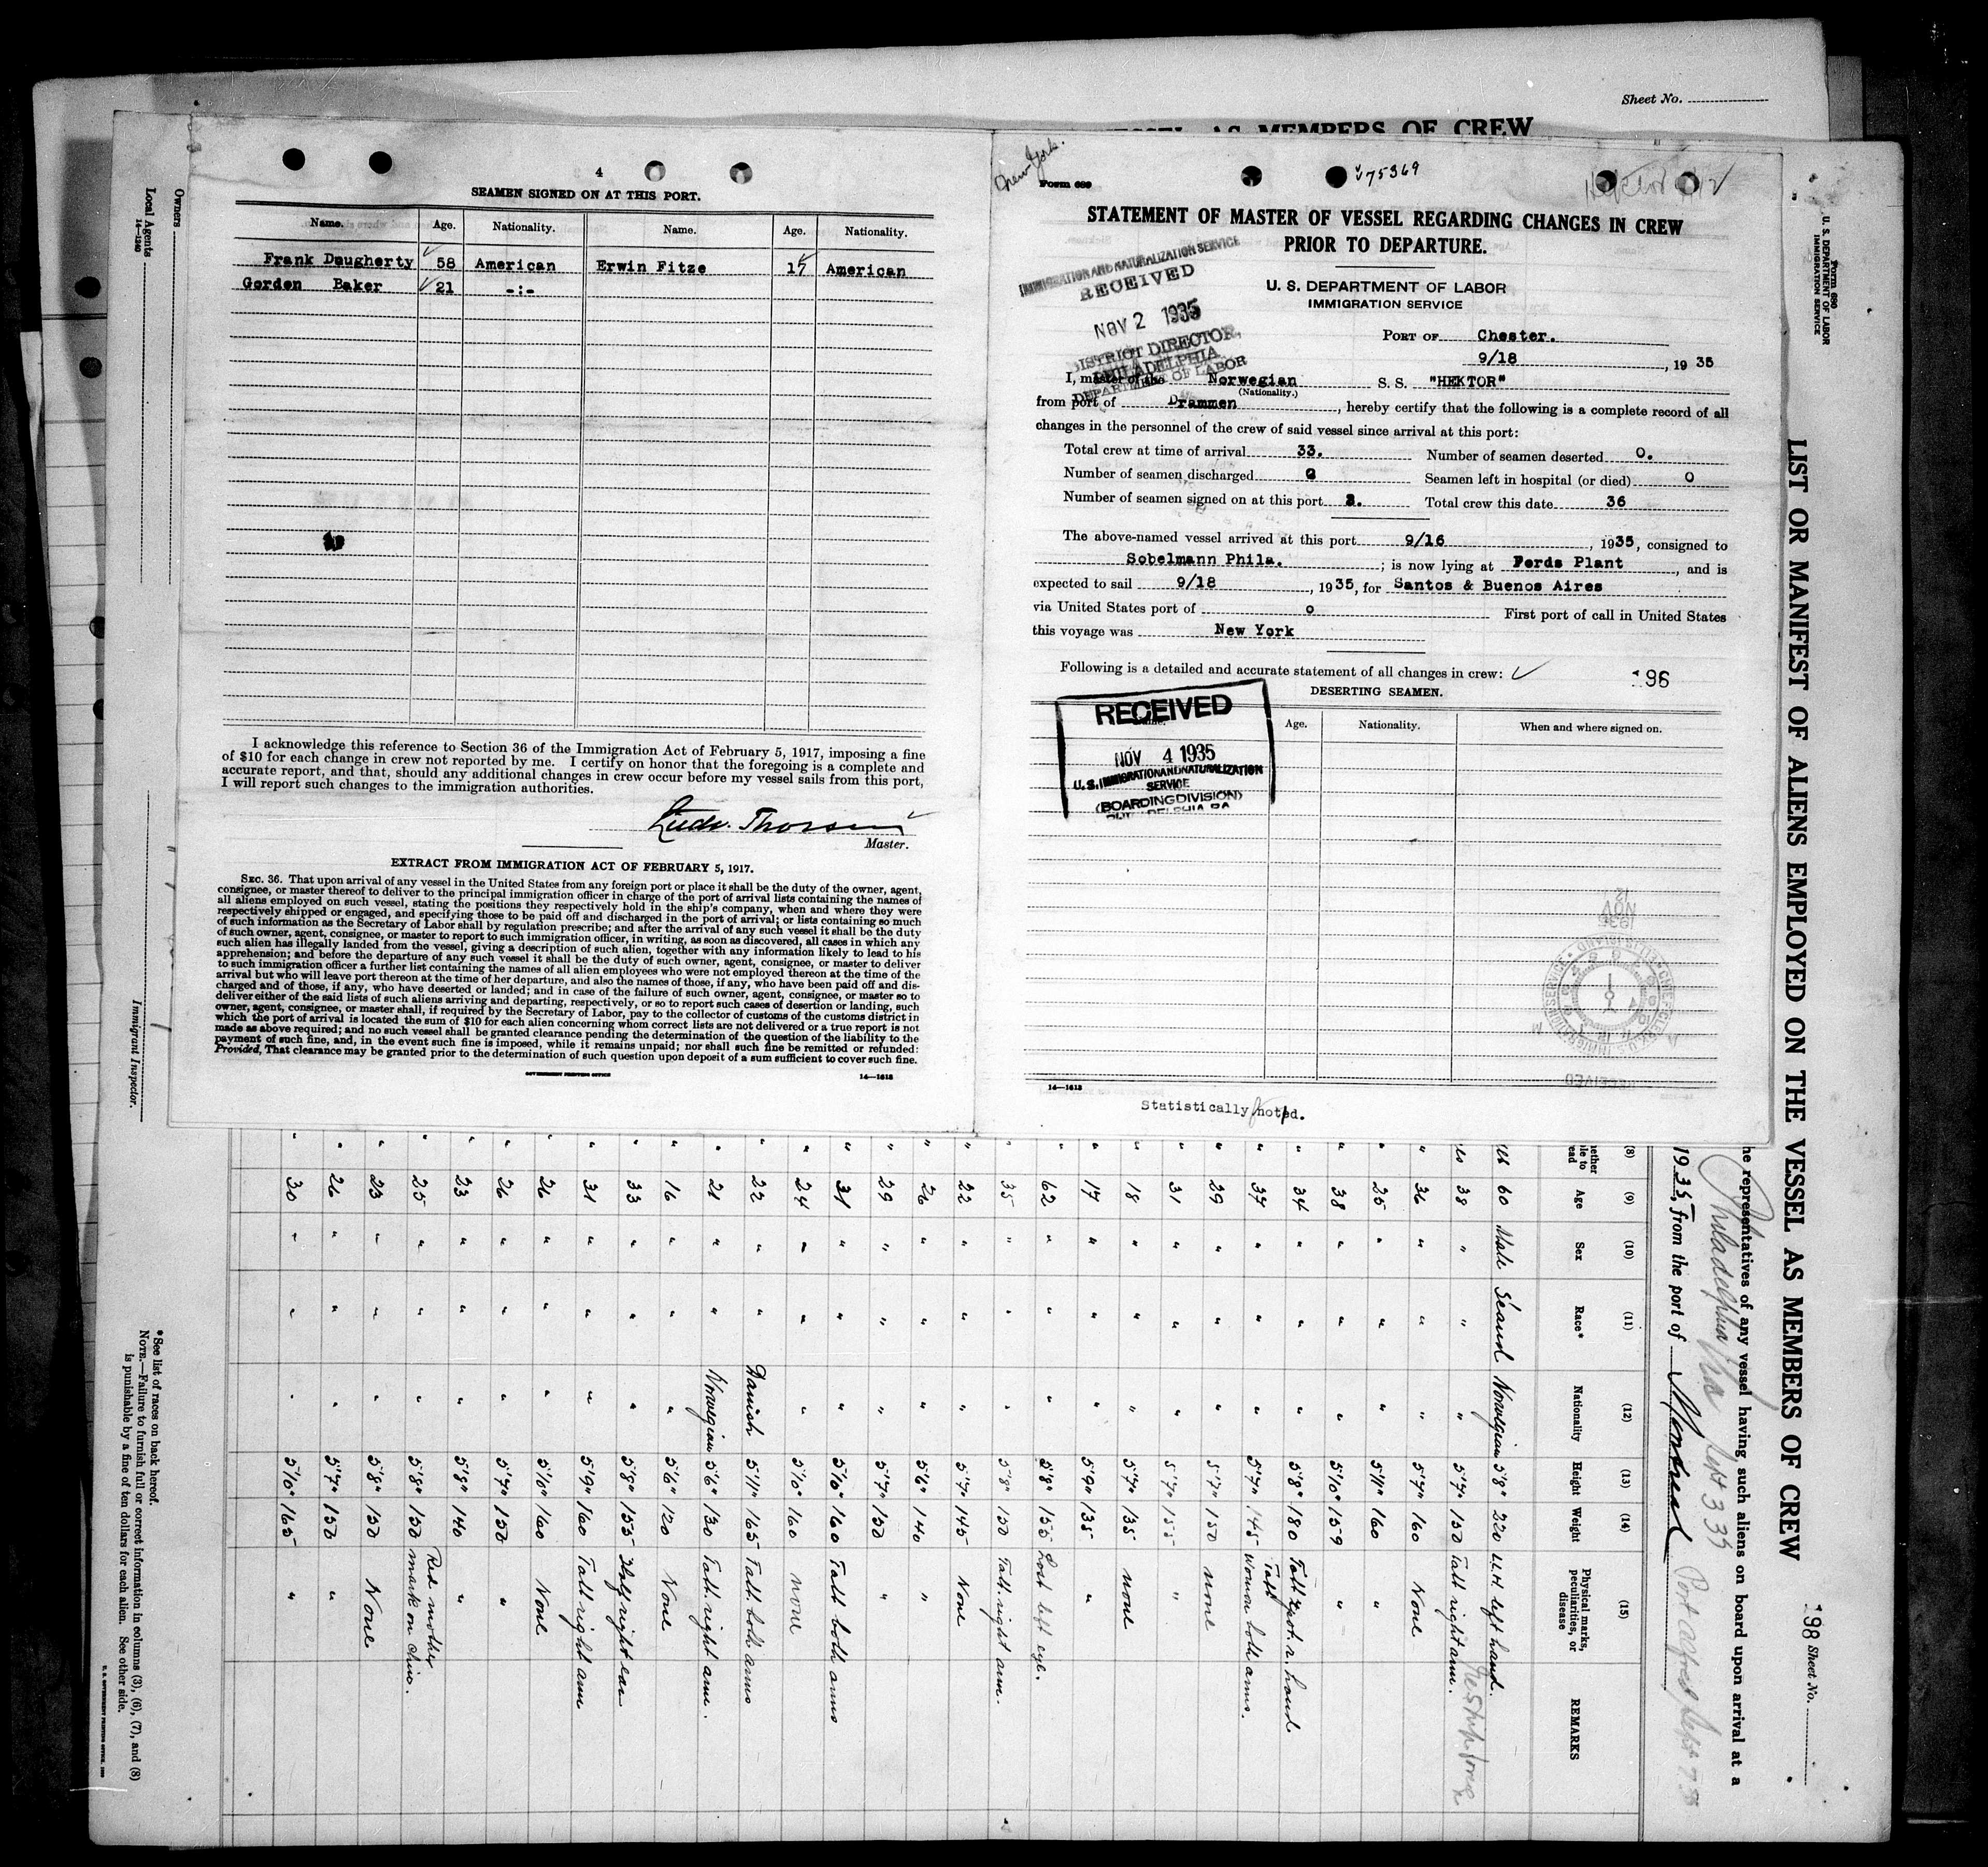 Sheet No.
AS MEMBERS OF CREW
4
SEAMEN SIGNED ON AT THIS PORT.
Name. Age. Nationality. Name. Age. Nationality.
Frank Daugherty 58 American Erwin Fitze 17 American
Gorden Baker 21 -:-
I acknowledge this reference to Section 36 of the Immigration Act of February 5, 1917, imposing a fine
of $10 for each change in crew not reported by me. I certify on honor that the foregoing is a complete and
accurate report, and that, should any additional changes in crew occur before my vessel sails from this port,
I will report such changes to the immigration authorities.
Master.
EXTRACT FROM IMMIGRATION ACT OF FEBRUARY 5, 1917.
SEC. 36. That upon arrival of any vessel in the United States from any foreign port or place it shall be the duty of the owner, agent,
consignee, or master thereof to deliver to the principal immigration officer in charge of the port of arrival lists containing the names of
all aliens employed on such vessel, stating the positions they respectively hold in the ship's company, when and where they were
respectively shipped or engaged, and specifying those to be paid off and discharged in the port of arrival; or lists containing so much
of such information as the Secretary of Labor shall by regulation prescribe; and after the arrival of any such vessel it shall be the duty
of such owner, agent, consignee, or master to report to such immigration officer, in writing, as soon as discovered, all cases in which any
such alien has illegally landed from the vessel, giving a description of such alien, together with any information likely to lead to his
apprehension; and before the departure of any such vessel it shall be the duty of such owner, agent, consignee, or master to deliver
to such immigration officer a further list containing the names of all alien employees who were not employed thereon at the time of the
arrival but who will leave port thereon at the time of her departure, and also the names of those, if any, who have been paid off and dis-
charged and of those, if any, who have deserted or landed; and in case of the failure of such owner, agent, consignee, or master so to
deliver either of the said lists of such aliens arriving and departing, respectively, or so to report such cases of desertion or landing, such
owner, agent, consignee, or master shall, if required by the Secretary of Labor, pay to the collector of customs of the customs district in
which the port of arrival is located the sum of $10 for each alien concerning whom correct lists are not delivered or a true report is not
made as above required; and no such vessel shall be granted clearance pending the determination of the question of the liability to the
payment of such fine, and, in the event such fine is imposed, while it remains unpaid; nor shall such fine be remitted or refunded:
Provided, That clearance may be granted prior to the determination of such question upon deposit of a sum sufficient to cover such fine.
GOVERNMENT PRINTING OFFICE 14—1613
New York.
Form 689
75369
STATEMENT OF MASTER OF VESSEL REGARDING CHANGES IN CREW
PRIOR TO DEPARTURE.
U. S. DEPARTMENT OF LABOR
IMMIGRATION SERVICE
IMMIGRATION AND NATURALIZATION SERVICE
RECEIVED
NOV 2 1935
DISTRICT DIRECTOR,
PHILADELPHIA
DEPARTMENT OF LABOR
PORT OF Chester.
9/18, 1935
I, master of the Norwegian S. S. "HEKTOR"
(Nationality.)
from port of Drammen, hereby certify that the following is a complete record of all
changes in the personnel of the crew of said vessel since arrival at this port:
Total crew at time of arrival 33. Number of seamen deserted 0.
Number of seamen discharged 0 Seamen left in hospital (or died) 0
Number of seamen signed on at this port 3. Total crew this date 36
The above-named vessel arrived at this port 9/16, 1935, consigned to
Sobelmann Phila.; is now lying at Fords Plant, and is
expected to sail 9/18, 1935, for Santos & Buenos Aires
via United States port of o First port of call in United States
this voyage was New York
Following is a detailed and accurate statement of all changes in crew:
196
DESERTING SEAMEN.
Age. Nationality. When and where signed on.
RECEIVED
NOV 4 1935
U.S. IMMIGRATION AND NATURALIZATION
SERVICE
(BOARDING DIVISION)
14—1613
Statistically noted.
Form 689
U. S. DEPARTMENT OF LABOR
IMMIGRATION SERVICE
LIST OR MANIFEST OF ALIENS EMPLOYED ON THE VESSEL AS MEMBERS OF CREW
198 Sheet No.
representatives of any vessel having such aliens on board upon arrival at a
Philadelphia Pa
1935, from the port of Montreal
(8) (9) (10) (11) (12) (13) (14) (15)
Age Sex Race* Nationality Height Weight Physical marks, peculiarities, or disease REMARKS
60 Male Scand Norwegian 5'8" 220 left hand.
38 " " " 5'7" 150 Tatt right arm.
36 " " " 5'7" 160 None
25 " " " 5'11" 160 "
38 " " " 5'10" 159 "
34 " " " 5'8" 180
37 " " " 5'7" 145 Woman both arms.
29 " " " 5'7" 150 none
31 " " " 5'7" 155 "
18 " " " 5'7" 135 none
17 " " " 5'9" 135 "
62 " " " 5'8" 155 Lost left eye.
35 " " " 5'8" 150 Tatt. right arm.
22 " " " 5'7" 145 None
26 " " " 5'6" 140 "
29 " " " 5'7" 150 "
31 " " " 5'10" 160 Tatt both arms
24 " " " 5'10" 160 none
22 " " Danish 5'11" 165 Tatt. both arms
21 " " Norwegian 5'6" 130 Tatt. right arm.
16 " " " 5'6" 120 None
33 " " " 5'8" 155 Half right ear
31 " " " 5'9" 160 Tatt right arm
26 " " " 5'10" 160 None
26 " " " 5'7" 150 "
23 " " " 5'8" 140 "
25 " " " 5'8" 150 Red mother mark on chin.
23 " " " 5'8" 150 None
26 " " " 5'7" 150 "
30 " " " 5'10" 165 "
Owners
Local Agents
14—1240
Immigrant Inspector.
*See list of races on back hereof.
NOTE.—Failure to furnish full or correct information in columns (3), (6), (7), and (8)
is punishable by a fine of ten dollars for each alien. See other side.